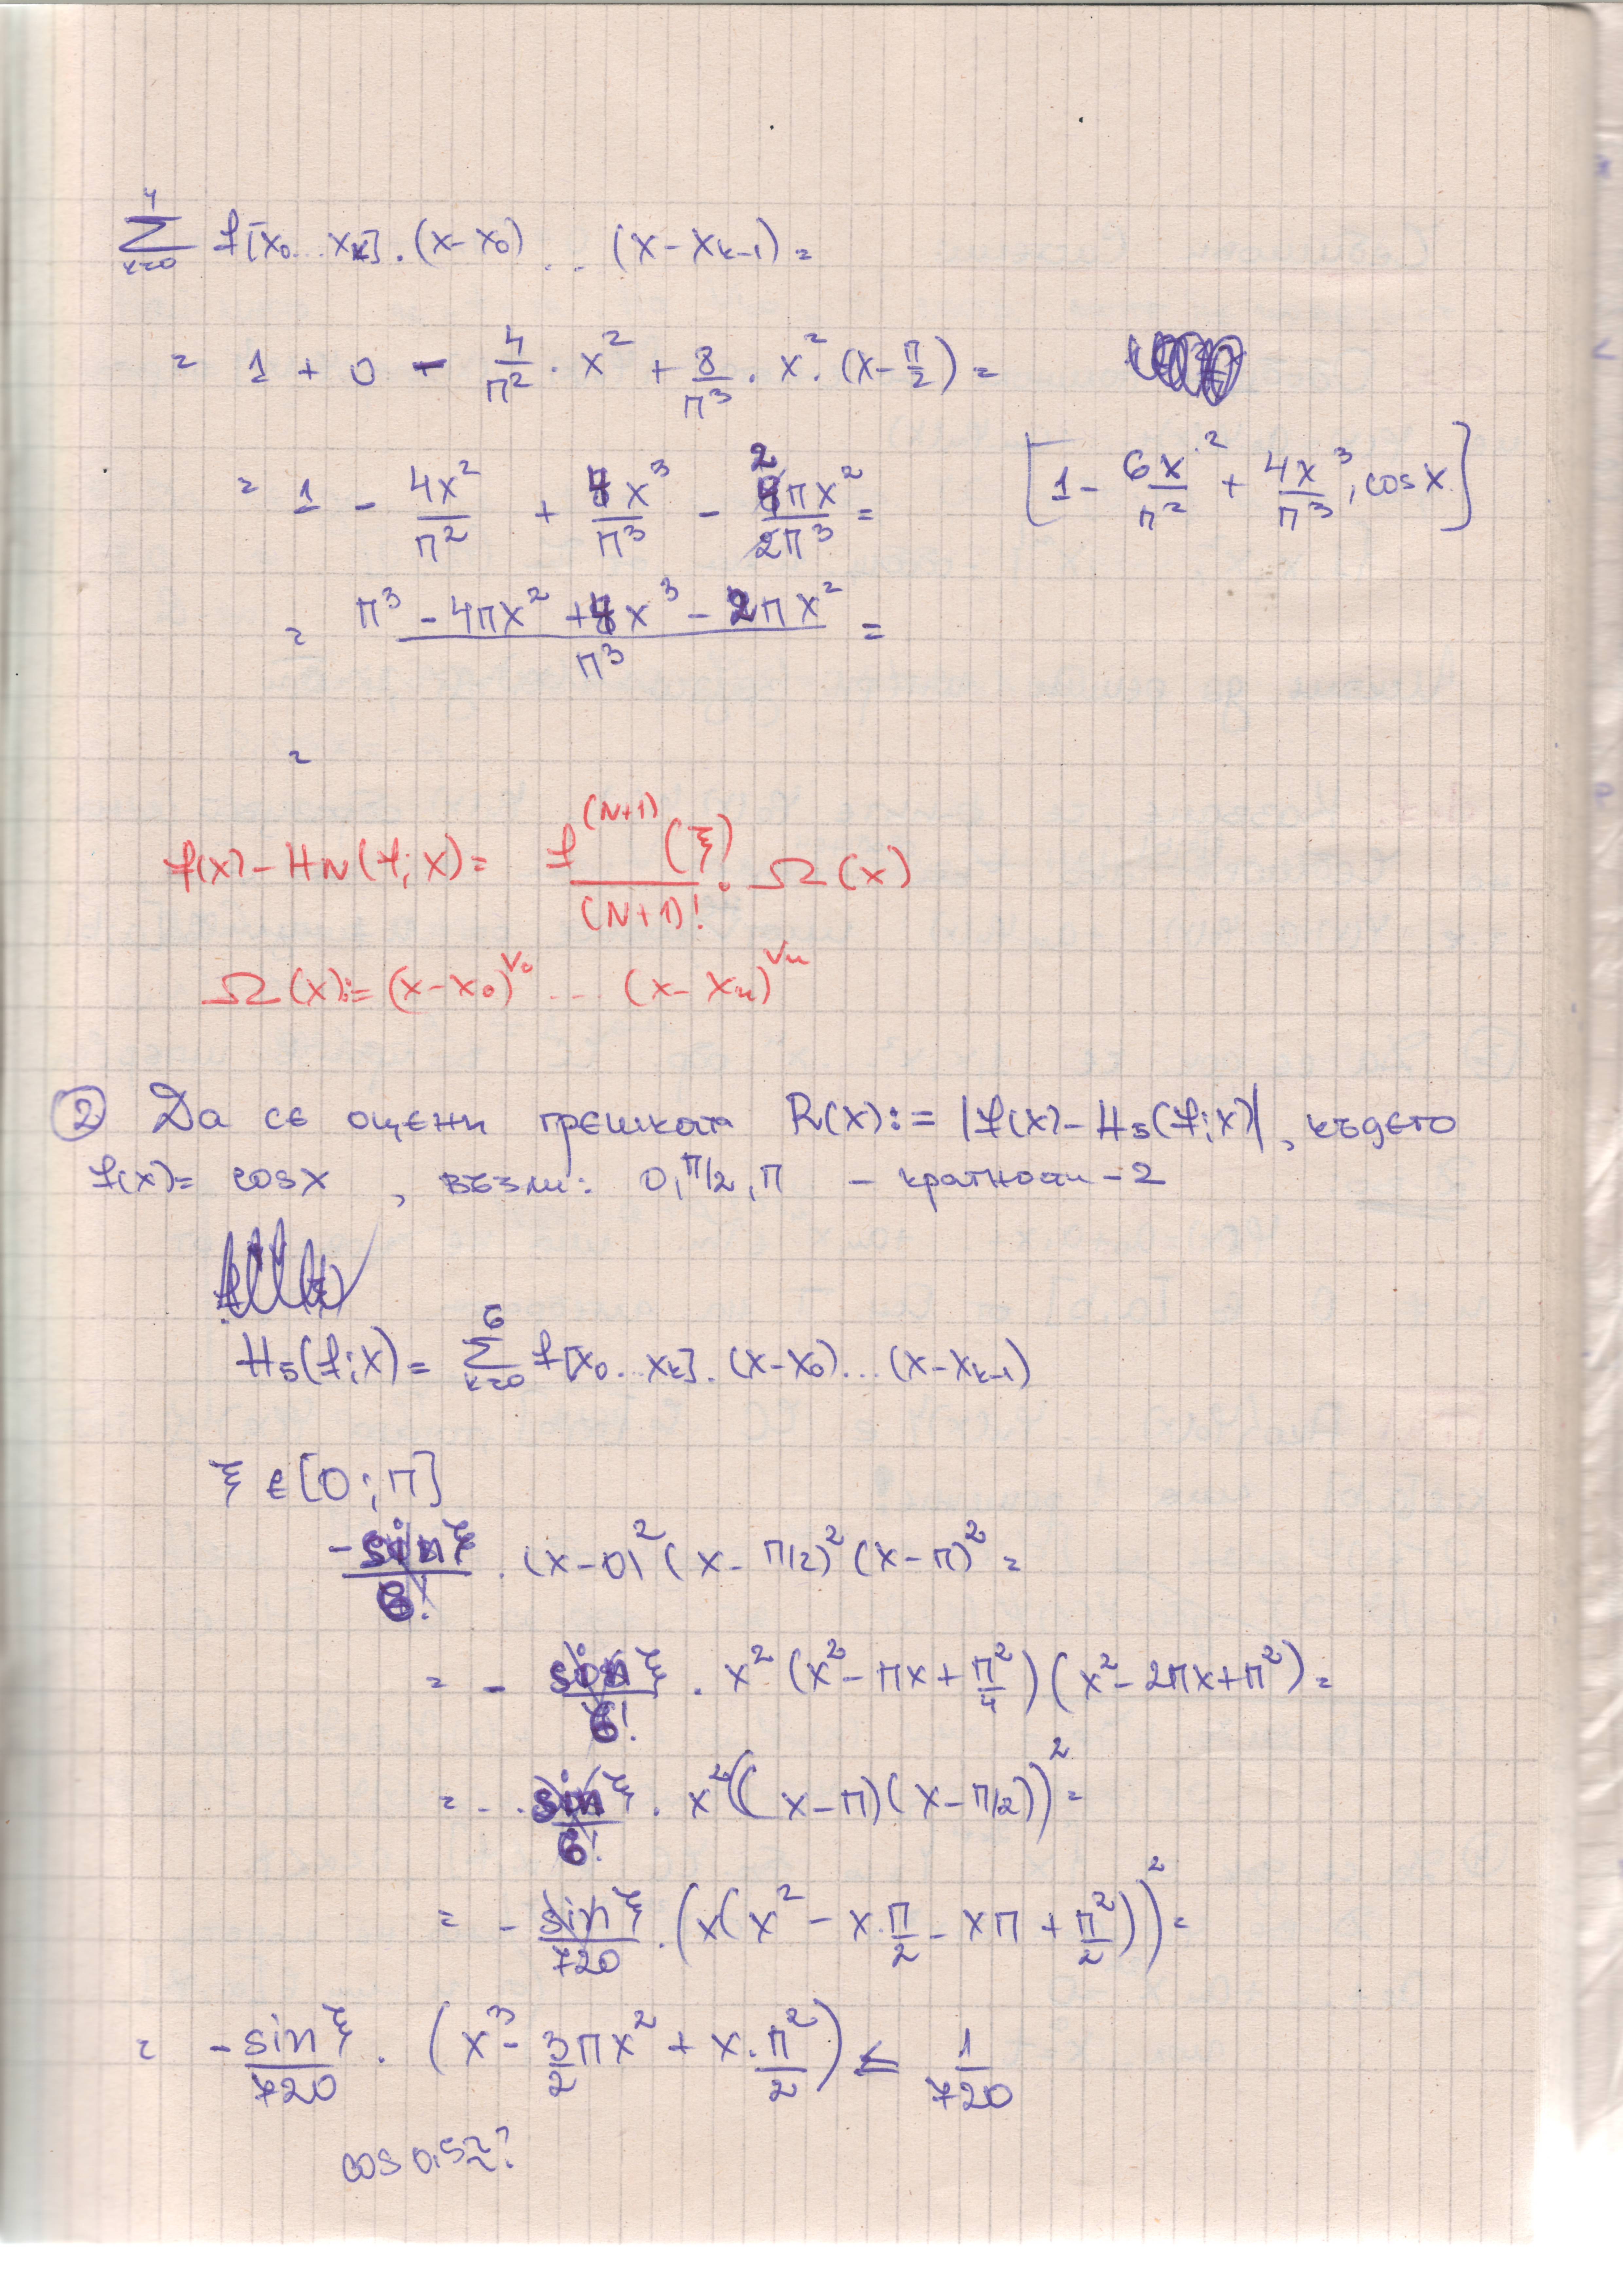 4
Σ f[x₀...x_k].(x-x₀) ... (x-x_{k-1}) =
k=0
= 1 + 0 - 4/π² . x² + 8/π³ . x². (x-π/2) =
= 1 - 4x²/π² + 4x³/π³ - 2πx²/2π³ = [1 - 6x²/π² + 4x³/π³, cosx]
= π³ - 4πx² + 4x³ - 2πx² / π³ =
=
f(x) - H_N(f;x) = f^(N+1)(ξ) / (N+1)! . Ω(x)
Ω(x) := (x-x₀)^ν₀ ... (x-x_n)^ν_n
② Да се оцени грешката R(x) := |f(x) - H₅(f;x)|, където
f(x) = cosx, възли: 0, π/2, π - кратности - 2
H₅(f;x) = Σ_{k=0}^{6} f[x₀...x_k]. (x-x₀)...(x-x_{k-1})
ξ ∈ [0;π]
-sinξ/6! . (x-0)² (x-π/2)² (x-π)² =
= - sinξ/6! . x² (x² - πx + π²/4) (x² - 2πx + π²) =
= - sinξ/6! . x² ((x-π)(x-π/2))² =
= - sinξ/720 . (x(x² - x.π/2 - xπ + π²/2))² =
= -sinξ/720 . (x³ - 3/2 πx² + x.π²/2) ≤ 1/720
cos 0,5 ≈ ?